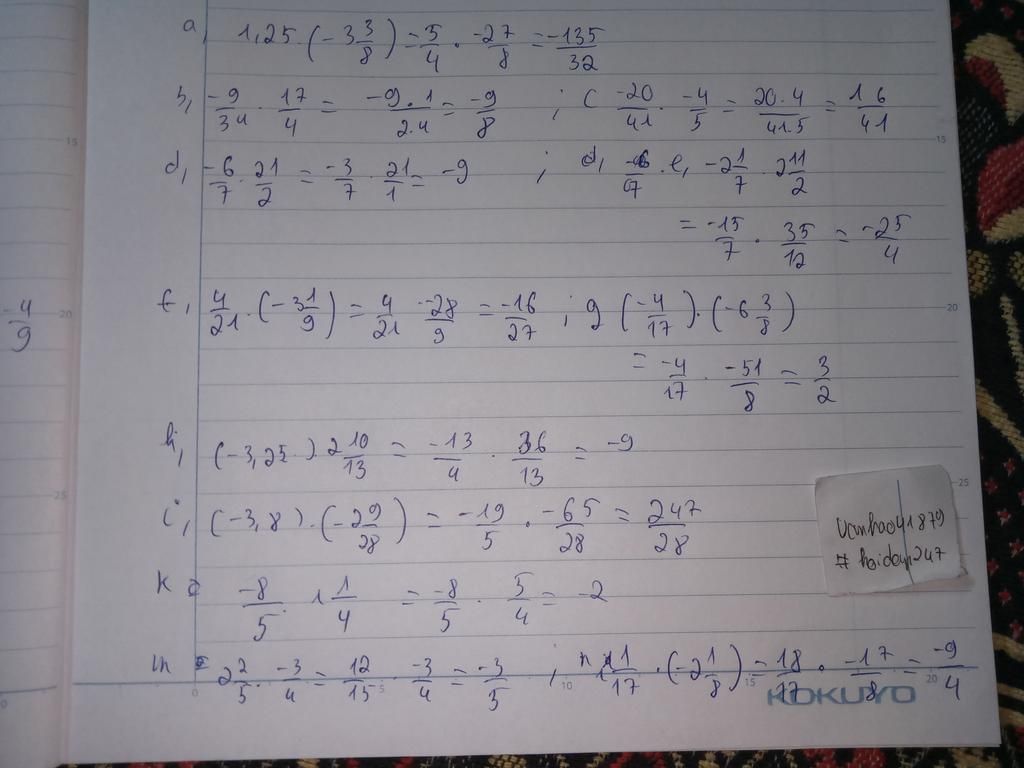 a, 1,25 . (-3 3/8) = 5/4 . -27/8 = -135/32
b, -9/34 . 17/4 = -9.1/2.4 = -9/8 ; c -20/41 . -4/5 = 20.4/41.5 = 16/41
d, -6/7 . 21/2 = -3/7 . 21/1 = -9 ; d, e, -2 1/7 . 2 11/2
= -15/7 . 35/12 = -25/4
-4/9
f, 4/21 . (-3 1/9) = 4/21 . -28/9 = -16/27 ; g (-4/17) . (-6 3/8)
= -4/17 . -51/8 = 3/2
h, (-3,25) 2 10/13 = -13/4 . 36/13 = -9
i, (-3,8) . (-2 9/28) = -19/5 . -65/28 = 247/28
Vanhao41879
# hoidap247
k -8/5 . 1 1/4 = -8/5 . 5/4 = -2
m 2 2/5 . -3/4 = 12/15 . -3/4 = -3/5 ; n 1 1/17 . (-2 1/8) = 18/17 . -17/8 = -9/4
KOKUYO